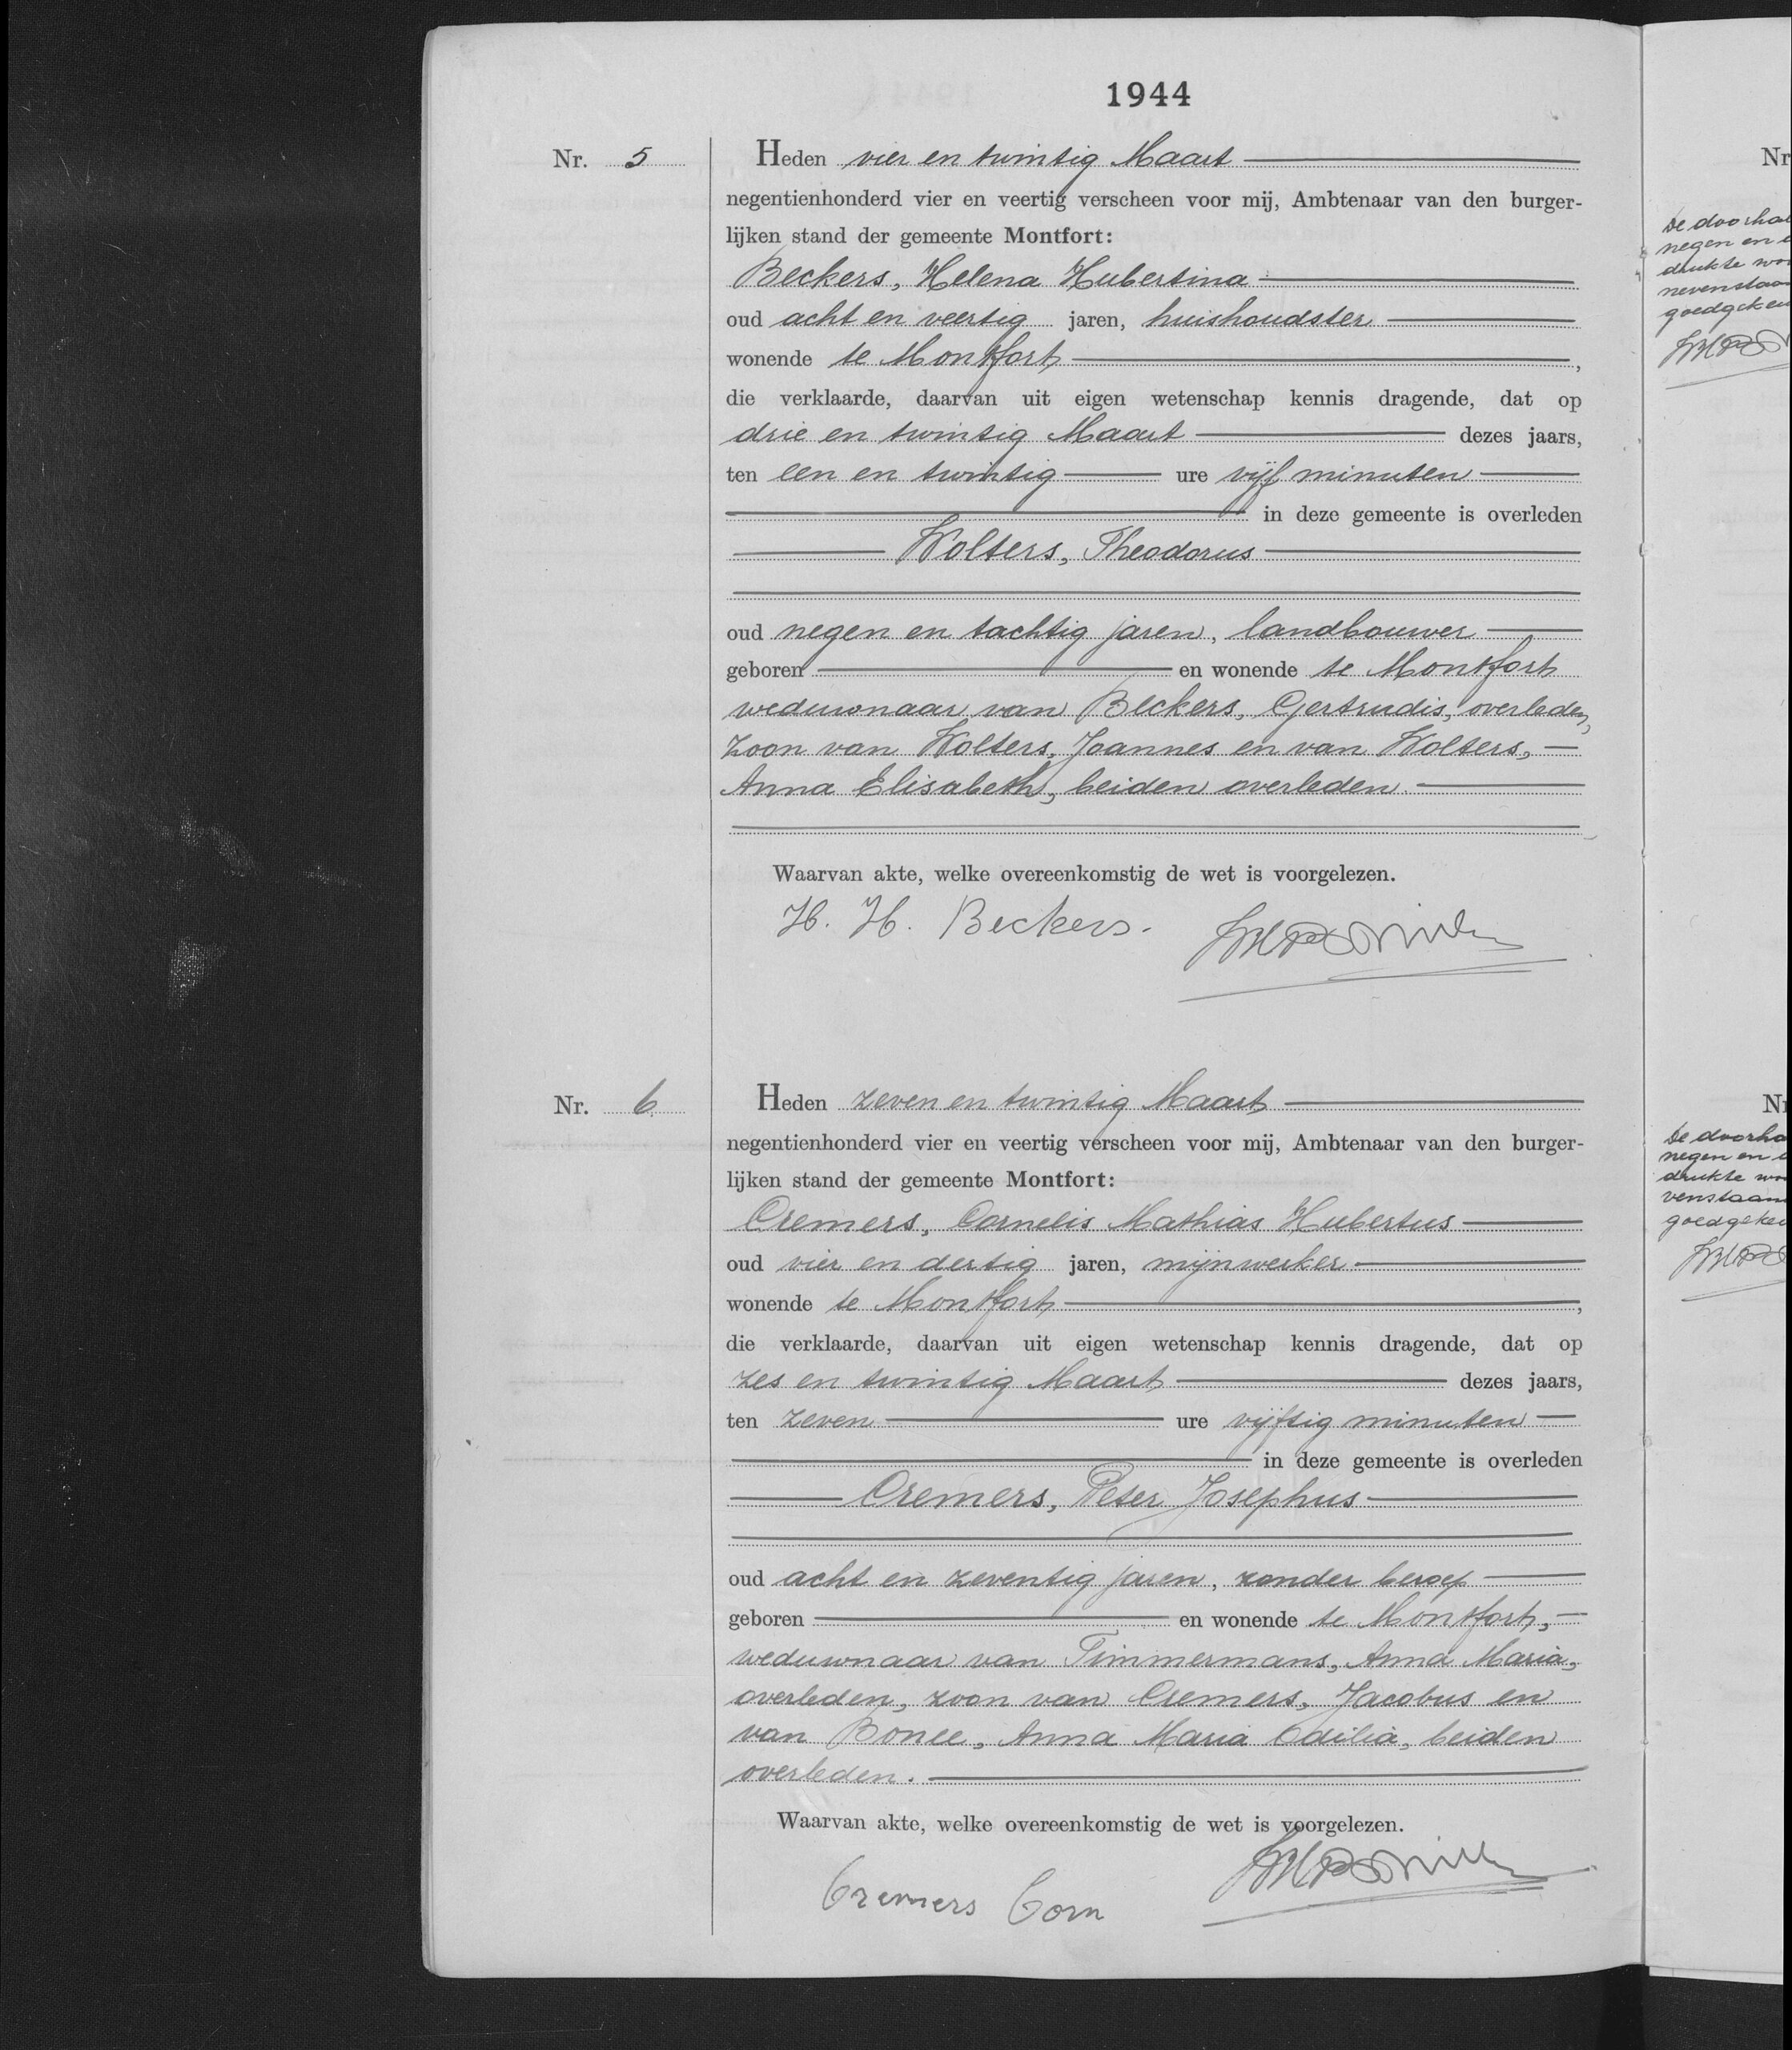 1944
Nr. 5
Heden vier en twintig Maart
negentienhonderd vier en veertig verscheen voor mij, Ambtenaar van den burger-
lijken stand der gemeente Montfort:
Beckers, Helena Hubertina
oud acht en veertig jaren, huishoudster
wonende te Montfort,
die verklaarde, daarvan uit eigen wetenschap kennis dragende, dat op
drie en twintig Maart dezes jaars,
ten een en twintig ure vijf minuten
in deze gemeente is overleden
Wolters, Theodorus
oud negen en tachtig jaren, landbouwer
geboren en wonende te Montfort
weduwnaar van Beckers, Gertrudis, overleden,
zoon van Wolters, Joannes en van Wolters,
Anna Elisabeth, beiden overleden
Waarvan akte, welke overeenkomstig de wet is voorgelezen.
H. H. Beckers.
Nr. 6
Heden zeven en twintig Maart
negentienhonderd vier en veertig verscheen voor mij, Ambtenaar van den burger-
lijken stand der gemeente Montfort:
Cremers, Cornelis Mathias Hubertus
oud vier en dertig jaren, mijnwerker
wonende te Montfort,
die verklaarde, daarvan uit eigen wetenschap kennis dragende, dat op
zes en twintig Maart dezes jaars,
ten zeven ure vijftig minuten
in deze gemeente is overleden
Cremers, Peter Josephus
oud acht en zeventig jaren, zonder beroep
geboren en wonende te Montfort,
weduwnaar van Timmermans, Anna Maria,
overleden, zoon van Cremers, Jacobus en
van Bonee, Anna Maria Odilia, beiden
overleden.
Waarvan akte, welke overeenkomstig de wet is voorgelezen.
Cremers Corn
Nr
De doorhal
negen en
drukte wo
nevenstaan
goedgekeu
Nr
De doorha
negen en
drukte wo
venstaan
goedgekeu